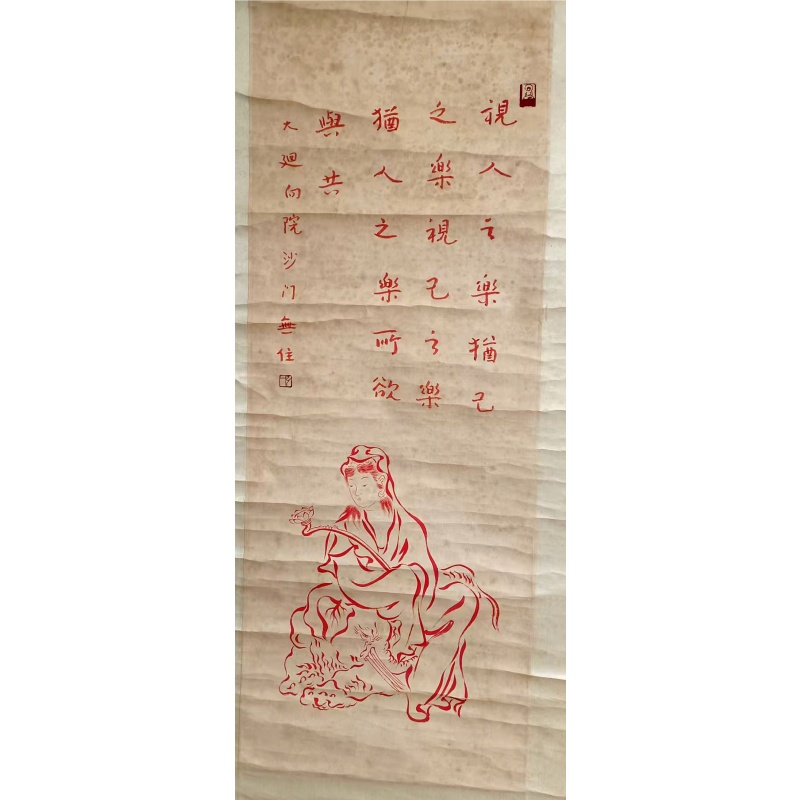 視人之樂猶己
之樂視己之樂
猶人之樂所欲
與共
大廻向院沙门無住